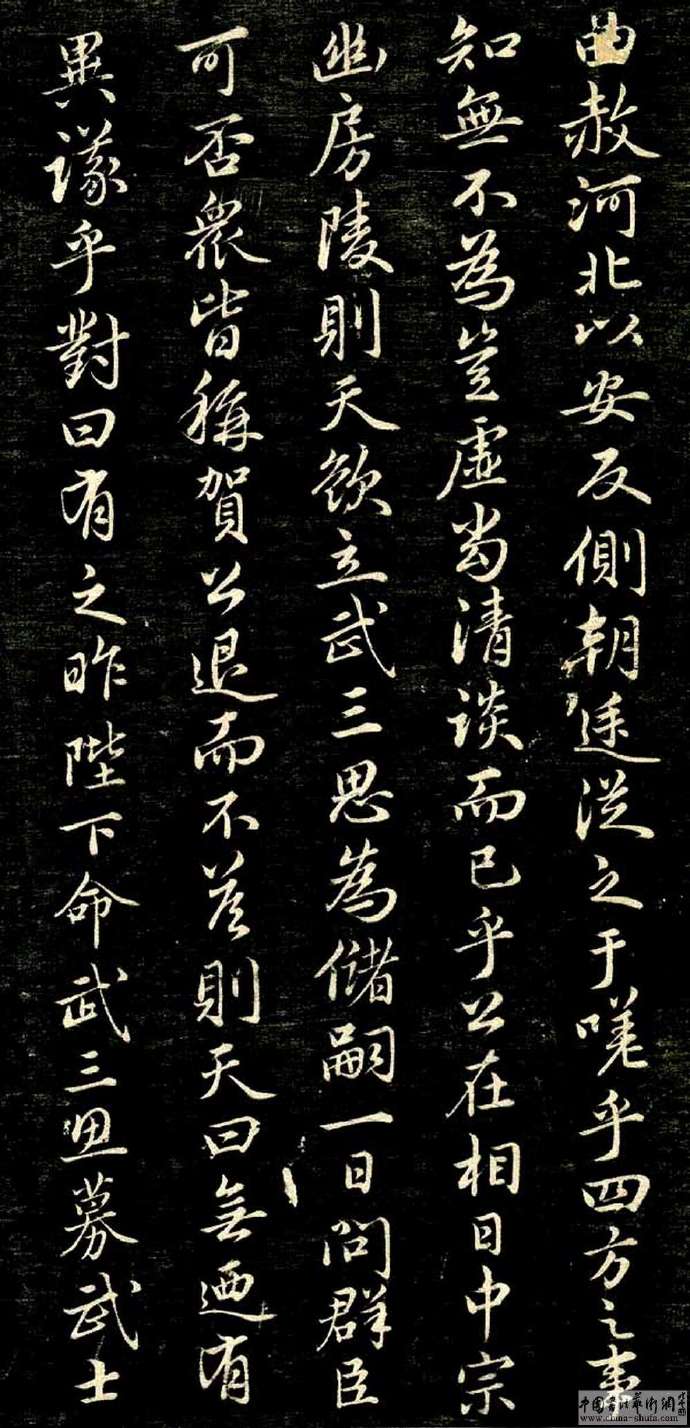 曲赦河北以安反側朝廷從之于嗟乎四方之事
知無不為豈虛尚清談而已乎公在相日中宗
幽房陵則天欲立武三思為儲嗣一日問群臣
可否眾皆稱賀公退而不答則天曰無迺有
異議乎對曰有之昨陛下命武三思募武士
中国书法艺術網
www.china-shufa.com